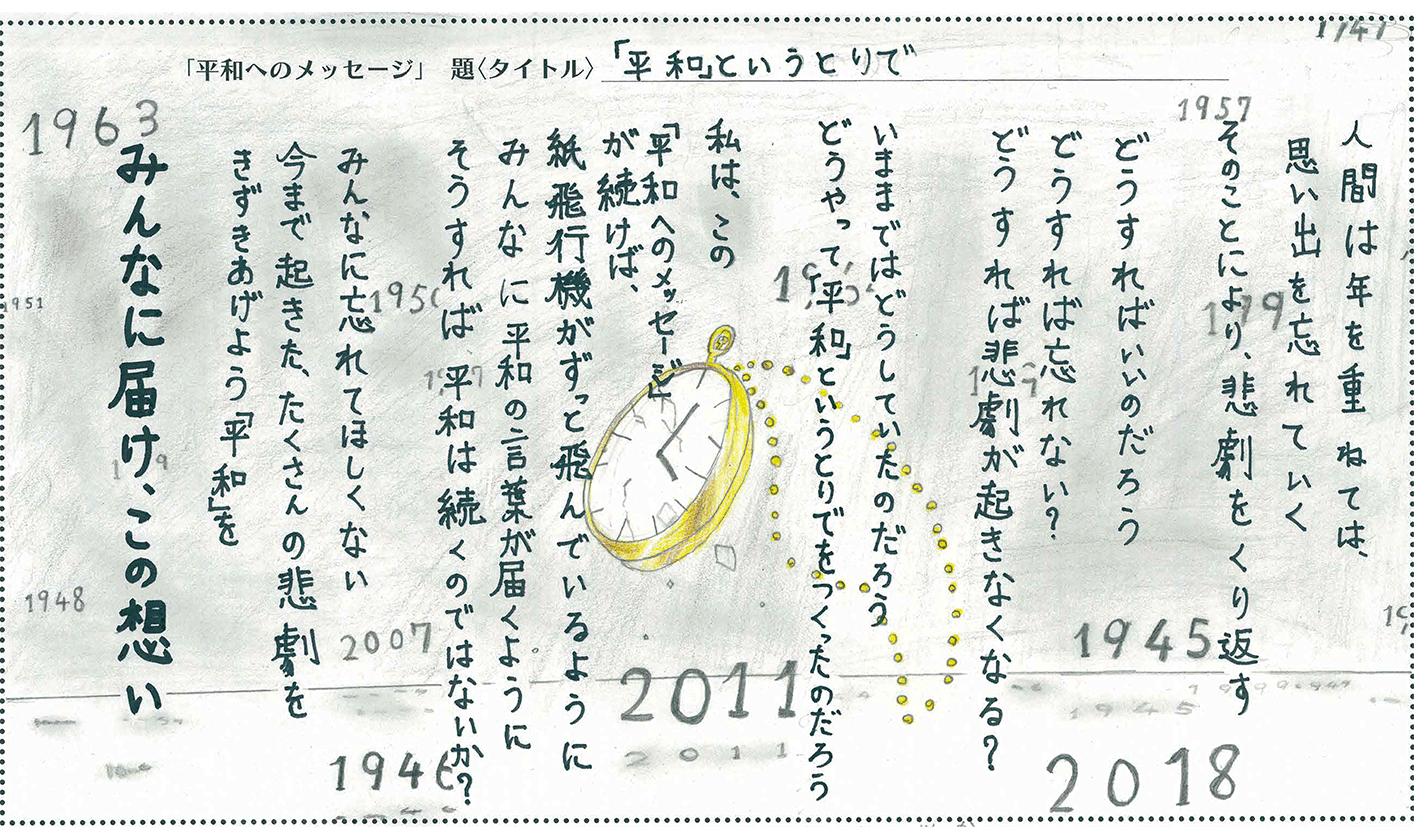 「平和へのメッセージ」 題〈タイトル〉 「平和」というとりで
人間は年を重ねては、
思い出を忘れていく
そのことにより、悲劇をくり返す
どうすればいいのだろう
どうすれば忘れない?
どうすれば悲劇が起きなくなる?
いままではどうしていたのだろう
どうやって「平和」というとりでをつくったのだろう
私は、この
「平和へのメッセージ」
が続けば、
紙飛行機がずっと飛んでいるように
みんなに平和の言葉が届くように
そうすれば平和は続くのではないか?
みんなに忘れてほしくない
今まで起きた、たくさんの悲劇を
きずきあげよう「平和」を
みんなに届け、この想い
1957
1963
1951
1945
1945
1948
2007
2011
2011
1946
2018